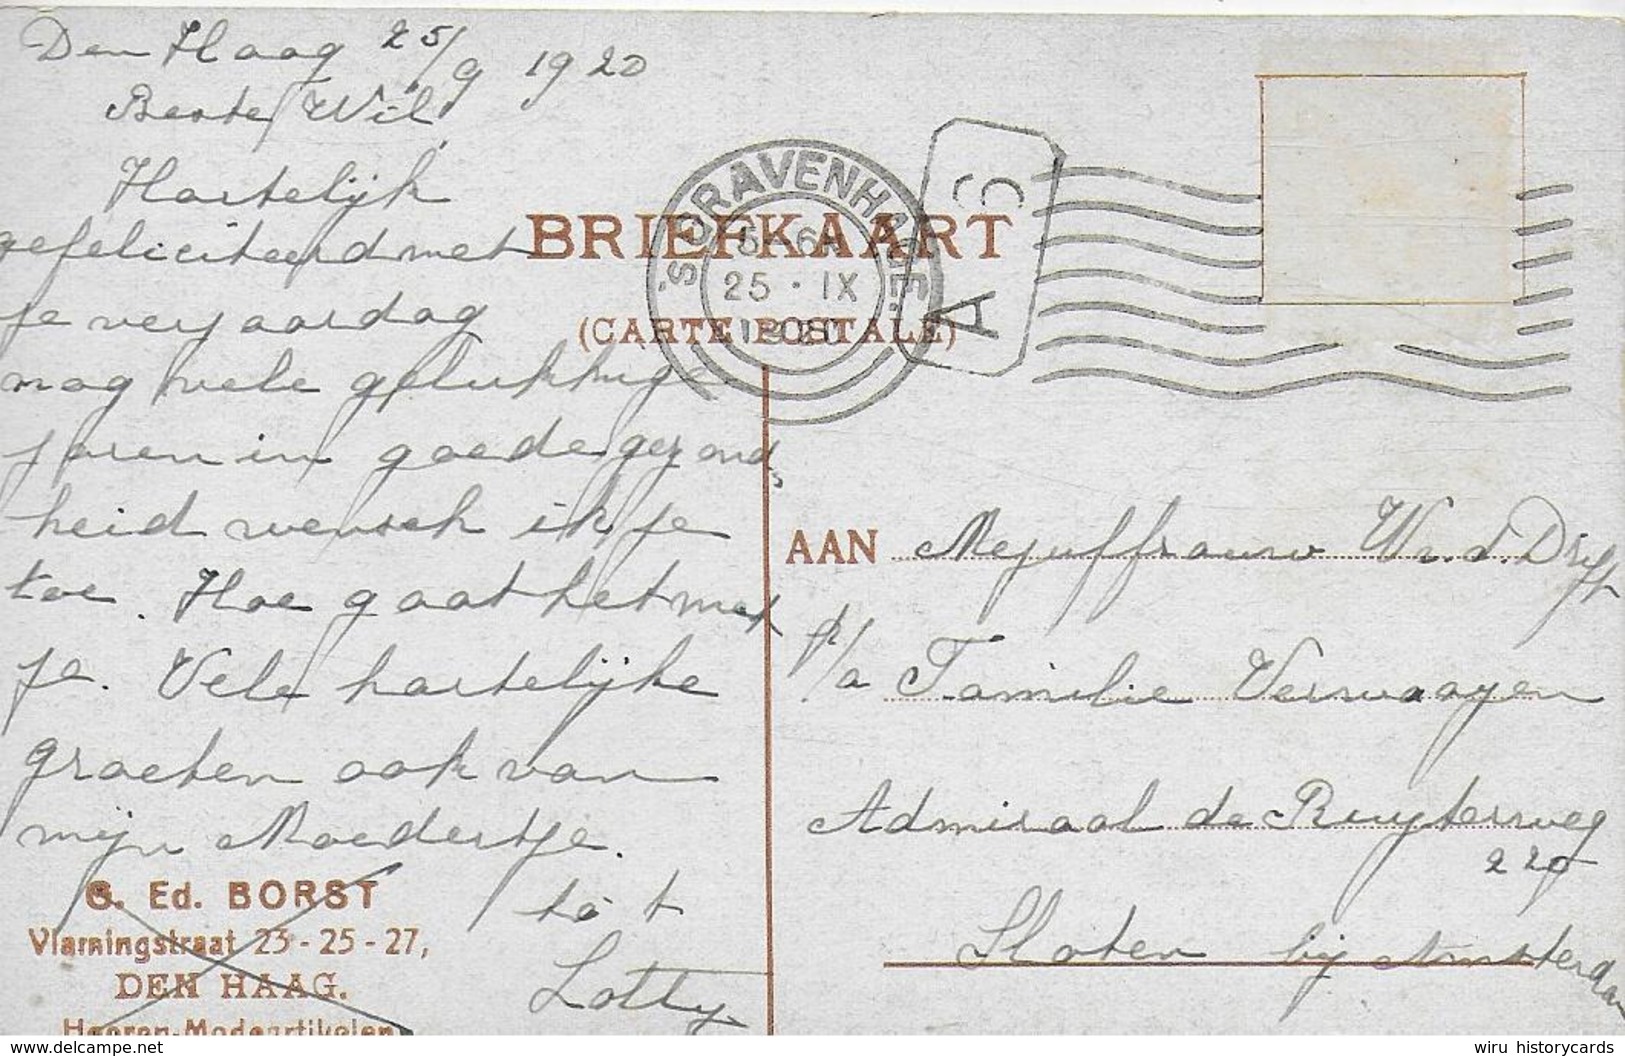 Den Haag 25/9 1920
Beste Wil,
Hartelijk
gefeliciteerd met
je verjaardag
nog vele gelukkige
jaren in goede gezond
heid wensch ik je
toe. Hoe gaat het met
je. Vele hartelijke
groeten ook van
mijn Moedertje.
tot
Lotty
G. Ed. BORST
Vlamingstraat 23-25-27,
DEN HAAG.
Heeren-Modeartikelen
BRIEFKAART
(CARTE POSTALE)
'S GRAVENHAGE.
5-6
25 · IX
1920
AAN Mejuffrouw W. v. d. Drift
p/a Familie Verwaayen
Admiraal de Ruyterweg
220
Sloten bij Amsterdam
wiru historycards